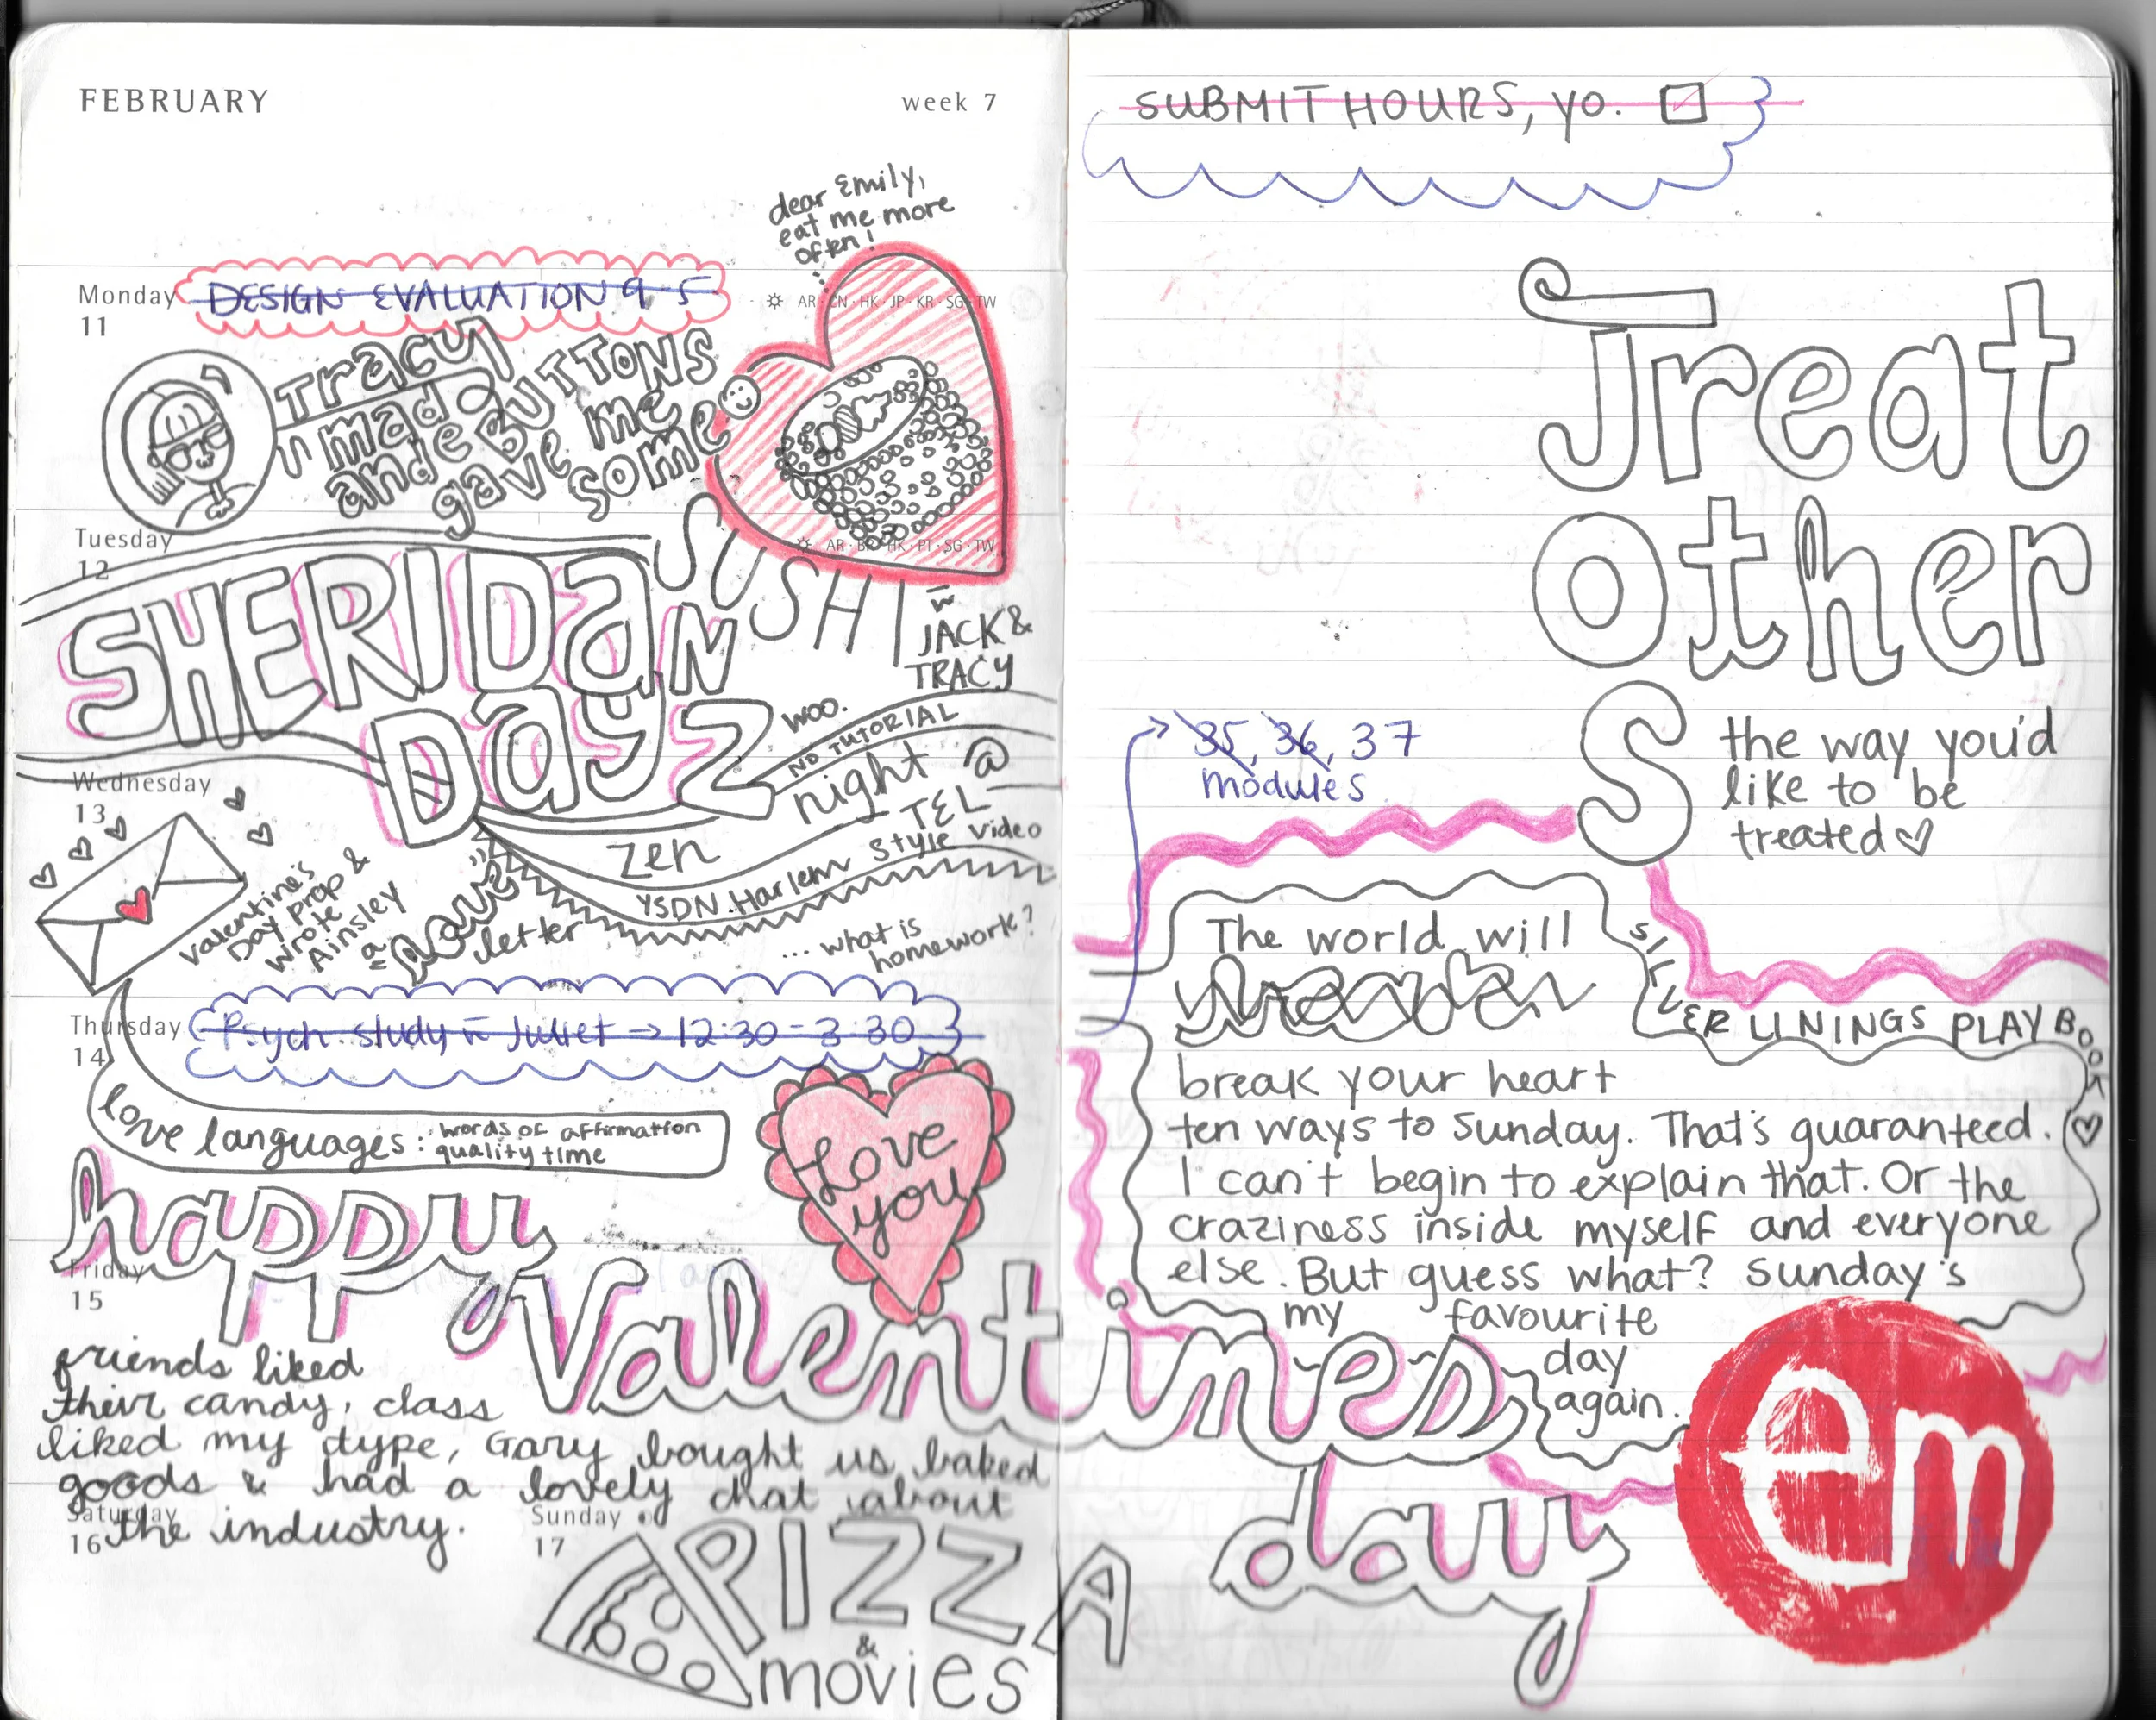 FEBRUARY
week 7
dear Emily,
eat me more
often!
Monday
11
DESIGN EVALUATION 9-5
AR · CN · HK · JP · KR · SG · TW
Tracy
made
BUTTONS
and
gave me
some
Tuesday
12
AR · BR · HK · PT · SG · TW
SUSHI
w
JACK &
TRACY
SHERIDAN
DAYZ
woo.
NO TUTORIAL
night @
TEL
zen
YSDN Harlem Style video
... what is
homework?
Wednesday
13
Valentine's
Day prep &
wrote
Ainsley
a
"love"
letter
Thursday
14
Psych. study w Juliet → 12:30-3:30
love languages: words of affirmation
quality time
Love
you
happy
Valentines
day
Friday
15
friends liked
their candy, class
liked my dtype, Gary bought us baked
goods & had a lovely chat about
the industry.
Saturday
16
Sunday
17
PIZZA
&
movies
SUBMIT HOURS, yo.
Treat
others
the way you'd
like to be
treated
35, 36, 37
modules
The world will
break your heart
ten ways to Sunday. That's guaranteed.
I can't begin to explain that. Or the
craziness inside myself and everyone
else. But guess what? Sunday's
my favourite
day
again.
SILVER LININGS PLAYBOOK
em